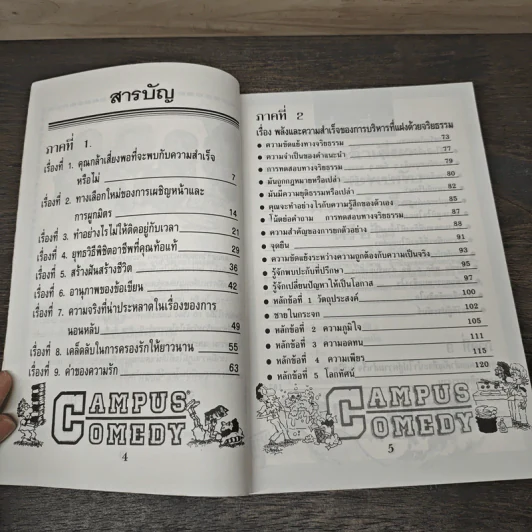 สารบัญ
ภาคที่ 1.
เรื่องที่ 1. คุณกล้าเสี่ยงพอที่จะพบกับความสำเร็จ
หรือไม่ 7
เรื่องที่ 2. ทางเลือกใหม่ของการเผชิญหน้าและ
การผูกมิตร 14
เรื่องที่ 3. ทำอย่างไรไม่ให้ติดอยู่กับเวลา 21
เรื่องที่ 4. ยุทธวิธีพิชิตอาชีพที่คุณท้อแท้ 29
เรื่องที่ 5. สร้างฝันสร้างชีวิต 36
เรื่องที่ 6. อานุภาพของข้อเขียน 42
เรื่องที่ 7. ความจริงที่น่าประหลาดในเรื่องของการ
นอนหลับ 49
เรื่องที่ 8. เคล็ดลับในการครองรักให้ยาวนาน 55
เรื่องที่ 9. ค่าของความรัก 63
CAMPUS
COMEDY
4
ภาคที่ 2
เรื่อง พลังและความสำเร็จของการบริหารที่แฝงด้วยจริยธรรม
ความขัดแย้งทางจริยธรรม 73
ความจำเป็นของคำแนะนำ 77
การทดสอบทางจริยธรรม 79
มันถูกกฎหมายหรือเปล่า 80
มันมีความยุติธรรมหรือเปล่า 82
คุณจะทำอย่างไรกับความรู้สึกของตัวเอง 85
การทดสอบทางจริยธรรม 87
ความสำคัญของการยกตัวอย่าง 88
จุดยืน 91
ความขัดแย้งระหว่างความถูกต้องกับความเป็นจริง 93
รู้จักพบปะกับที่ปรึกษา 95
รู้จักเปลี่ยนปัญหาให้เป็นโอกาส 97
หลักข้อที่ 1 วัตถุประสงค์ 100
ชายในกระจก 102
หลักข้อที่ 2 ความภูมิใจ 105
หลักข้อที่ 3 ความอดทน 111
หลักข้อที่ 4 ความเพียร 115
หลักข้อที่ 5 โลกทัศน์ 120
CAMPUS
COMEDY
5